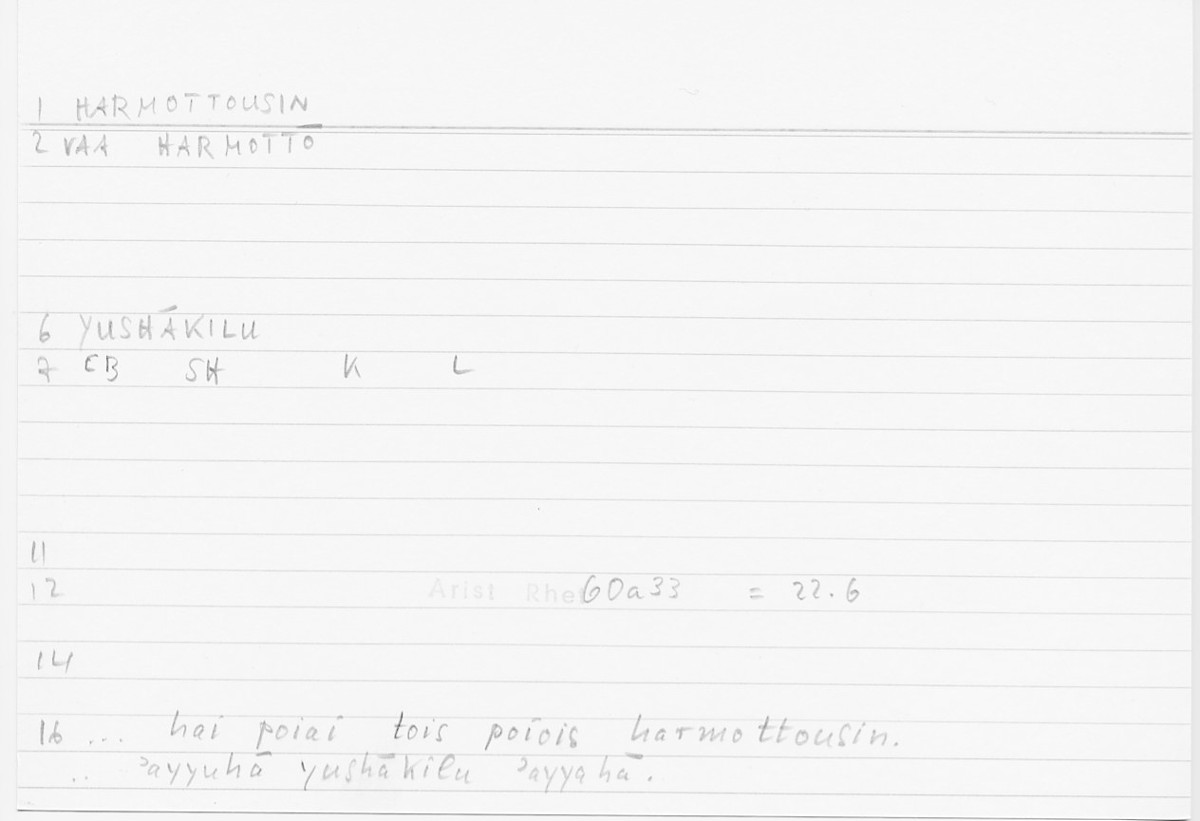 1 HARMOTTOUSIN
2 VAA HARMOTTŌ
6 YUSHĀKILU
7 EB SH K L
11
12 Arist Rhet 60a33 = 22.6
14
16 ... hai poiai tois poiois harmottousin.
.. ʾayyuhā yushākilu ʾayyahā.